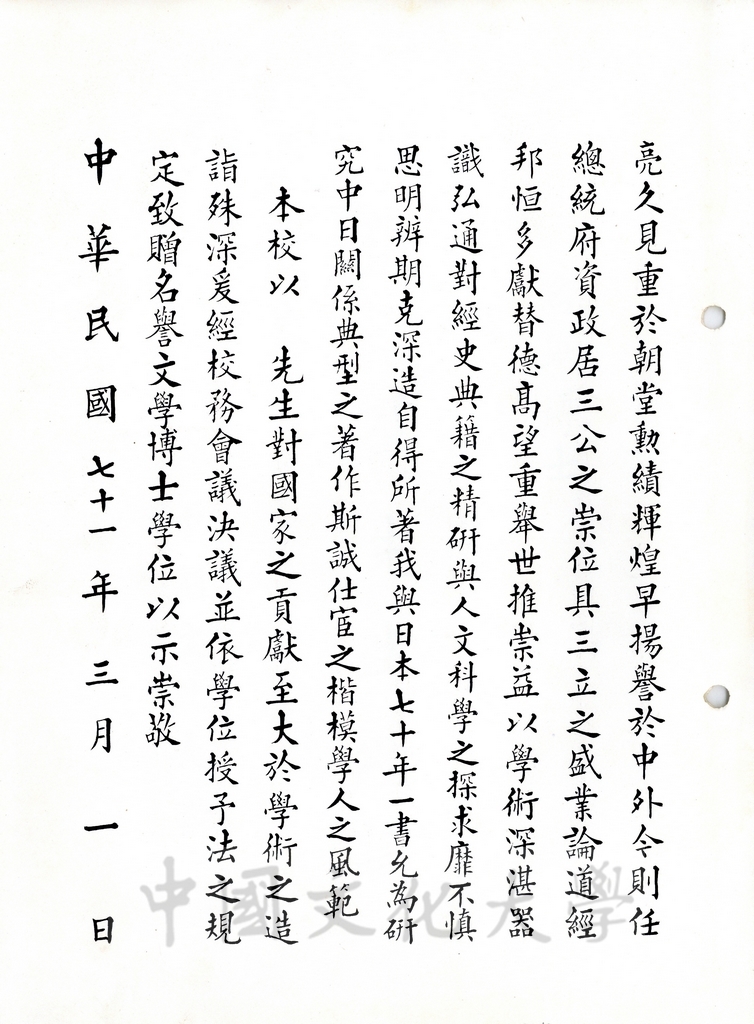 亮久見重於朝堂勲績輝煌早揚譽於中外今則任
總統府資政居三公之崇位具三立之盛業論道經
邦恒多獻替德高望重舉世推崇益以學術深湛器
識弘通對經史典籍之精研與人文科學之探求靡不慎
思明辨期克深造自得所著我與日本七十年一書允為研
究中日關係典型之著作斯誠仕宦之楷模學人之風範
本校以 先生對國家之貢獻至大於學術之造
詣殊深爰經校務會議決議並依學位授予法之規
定致贈名譽文學博士學位以示崇敬
中華民國七十一年三月一日
中國文化大學